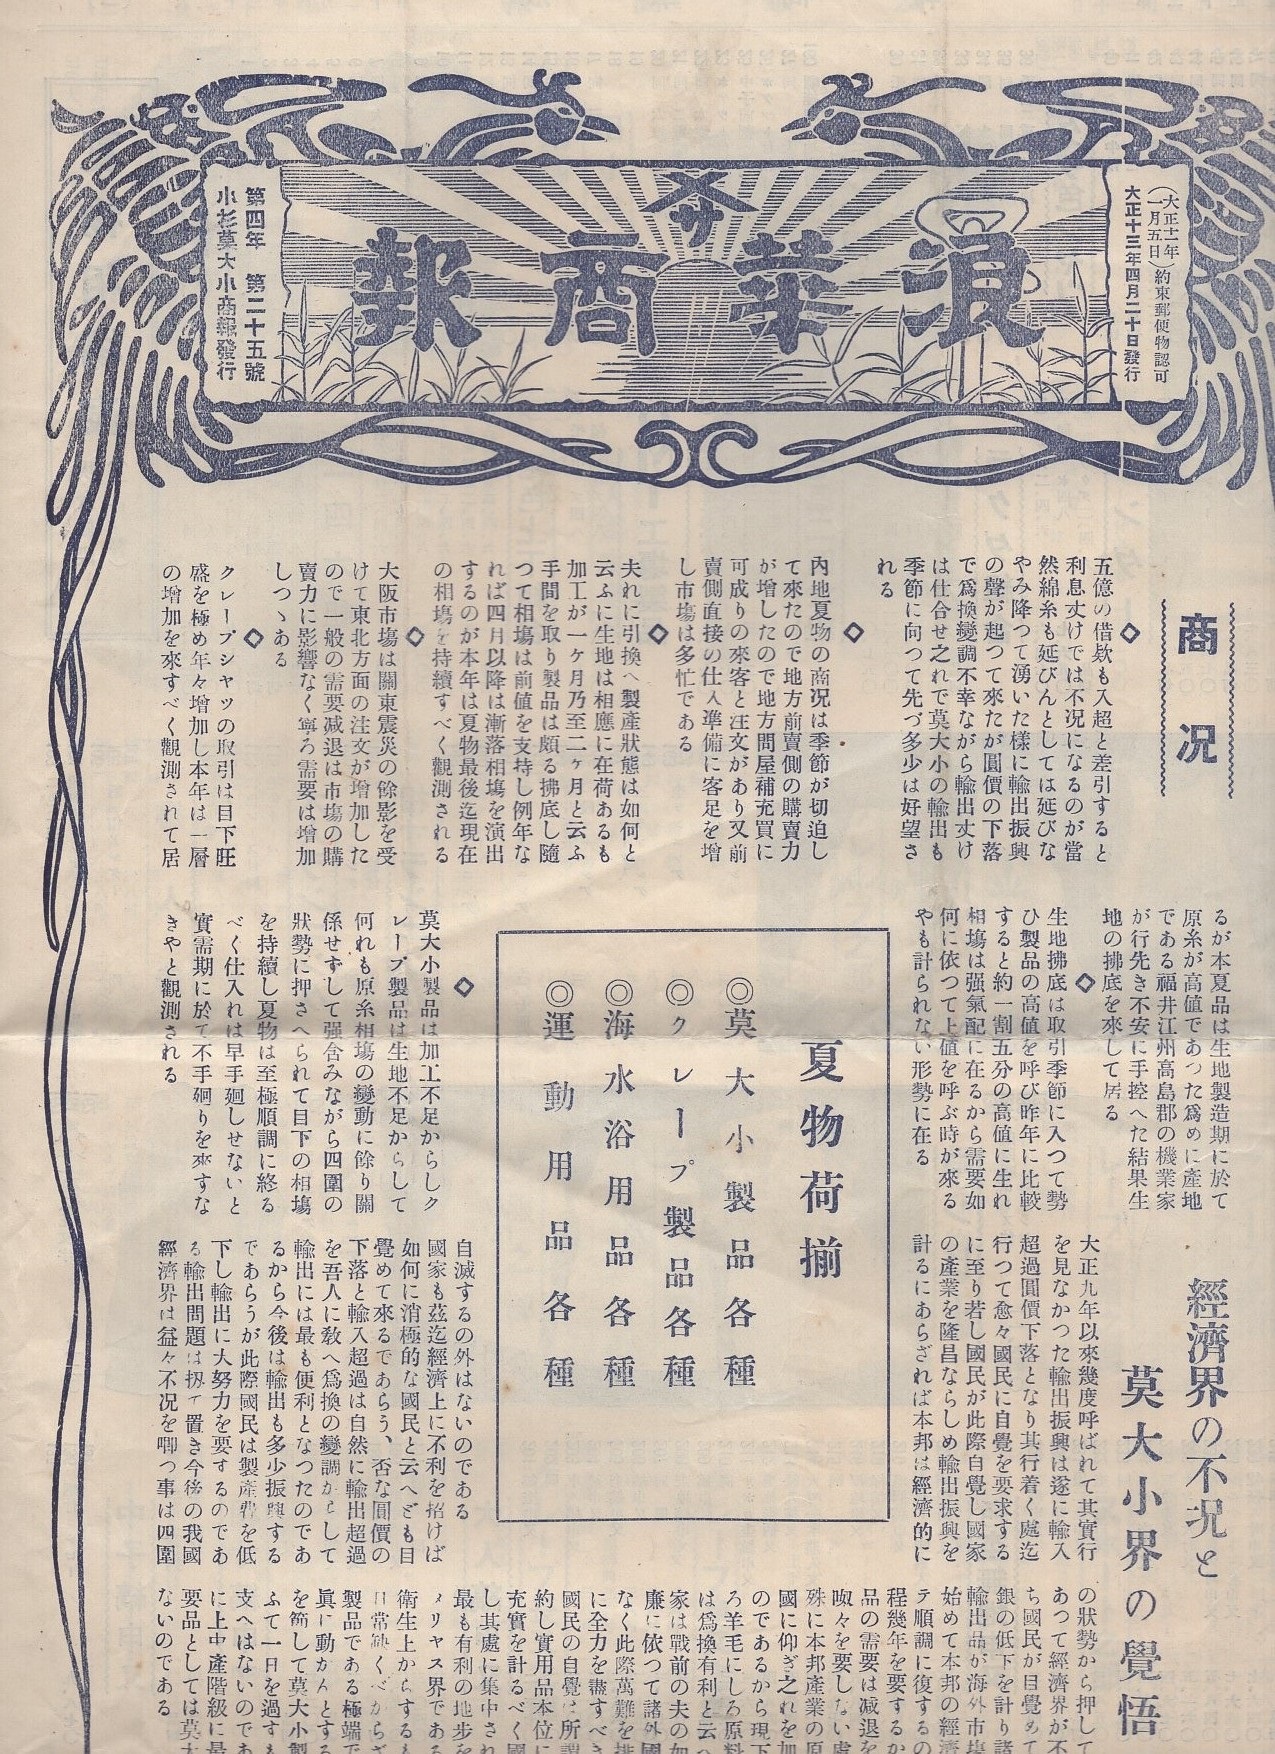 (大正十一年一月五日)約束郵便物認可
大正十三年四月二十日發行
サ
浪華商報
第四年 第二十五號
小杉莫大小商報發行
商况
◇
五億の借欵も入超と差引すると
利息丈けでは不况になるのが當
然綿糸も延びんとしては延びな
やみ降つて湧いた樣に輸出振興
の聲が起つて來たが圓價の下落
で爲換變調不幸ながら輸出丈け
は仕合せ之れで莫大小の輸出も
季節に向つて先づ多少は好望さ
れる
◇
內地夏物の商况は季節が切迫し
て來たので地方前賣側の購賣力
が增したので地方問屋補充買に
可成りの來客と注文があり又前
賣側直接の仕入準備に客足を增
し市塲は多忙である
◇
夫れに引換へ製產狀態は如何と
云ふに生地は相應に在荷あるも
加工が一ヶ月乃至二ヶ月と云ふ
手間を取り製品は頗る拂底し隨
つて相塲は前値を支持し例年な
れば四月以降は漸落相塲を演出
するのが本年は夏物最後迄現在
の相塲を持續すべく觀測される
◇
大阪市塲は關東震災の餘影を受
けて東北方面の注文が增加した
ので一般の需要减退は市塲の購
賣力に影響なく寧ろ需要は增加
しつゝある
◇
クレープシャツの取引は目下旺
盛を極め年々增加し本年は一層
の增加を來すべく觀測されて居
るが本夏品は生地製造期に於て
原糸が高値であつた爲めに產地
である福井江州高島郡の機業家
が行先き不安に手控へた結果生
地の拂底を來して居る
◇
生地拂底は取引季節に入つて勢
ひ製品の高値を呼び昨年に比較
すると約一割五分の高値に生れ
相塲は强氣配に在るから需要如
何に依つて上値を呼ぶ時が來る
やも計られない形勢に在る
夏物荷揃
◎莫大小製品各種
◎クレープ製品各種
◎海水浴用品各種
◎運動用品各種
◇
莫大小製品は加工不足からしク
レープ製品は生地不足からして
何れも原糸相塲の變動に餘り關
係せずして强含みながら四圍の
狀勢に押さへられて目下の相塲
を持續し夏物は至極順調に終る
べく仕入れは早手廻しせないと
實需期に於て不手廻りを來すな
きやと觀測される
經濟界の不况と
莫大小界の覺悟
大正九年以來幾度呼ばれて其實行
を見なかつた輸出振興は遂に輸入
超過圓價下落となり其行着く處迄
行つて愈々國民に自覺を要求する
に至り若し國民が此際自覺し國家
の產業を隆昌ならしめ輸出振興を
計るにあらざれば本邦は經濟的に
自滅するの外はないのである
國家も茲迄經濟上に不利を招けば
如何に消極的な國民と云へども目
覺めて來るであらう、否な圓價の
下落と輸入超過は自然に輸出超過
を吾人に敎へ爲換の變調からして
輸出には最も便利となつたのであ
るから今後は輸出も多少振興する
であらうが此際國民は製產費を低
下し輸出に大努力を要するのであ
る輸出問題は扨て置き今後の我國
經濟界は益々不况を喞つ事は四圍
の狀勢から押して
あつて經濟界が不
ち國民が目覺めて
銀の低下を計り諸
輸出品が海外市塲
始めて本邦の經濟
テ順調に復するの
程幾年を要するか
品の需要は减退を
呶々を要しない處
殊に本邦產業の原
國に仰ぎ之れを加
のであるから現下
ろ羊毛にしろ原料
は爲換有利と云つ
家は戰前の夫の如
廉に依つて諸外國
なく此際萬難を排
に全力を盡すべき
國民の自覺は所謂
約し實用品本位に
充實を計るべく國
し其處に集中され
最も有利の地步を
メリヤス界である
衛生上からするも
日常缺くべからざ
製品である極端で
眞に動かんとする
を節して莫大小製
ふて一日を過すも
支へはないのであ
に上中產階級に最
要品としては莫大
ないのである